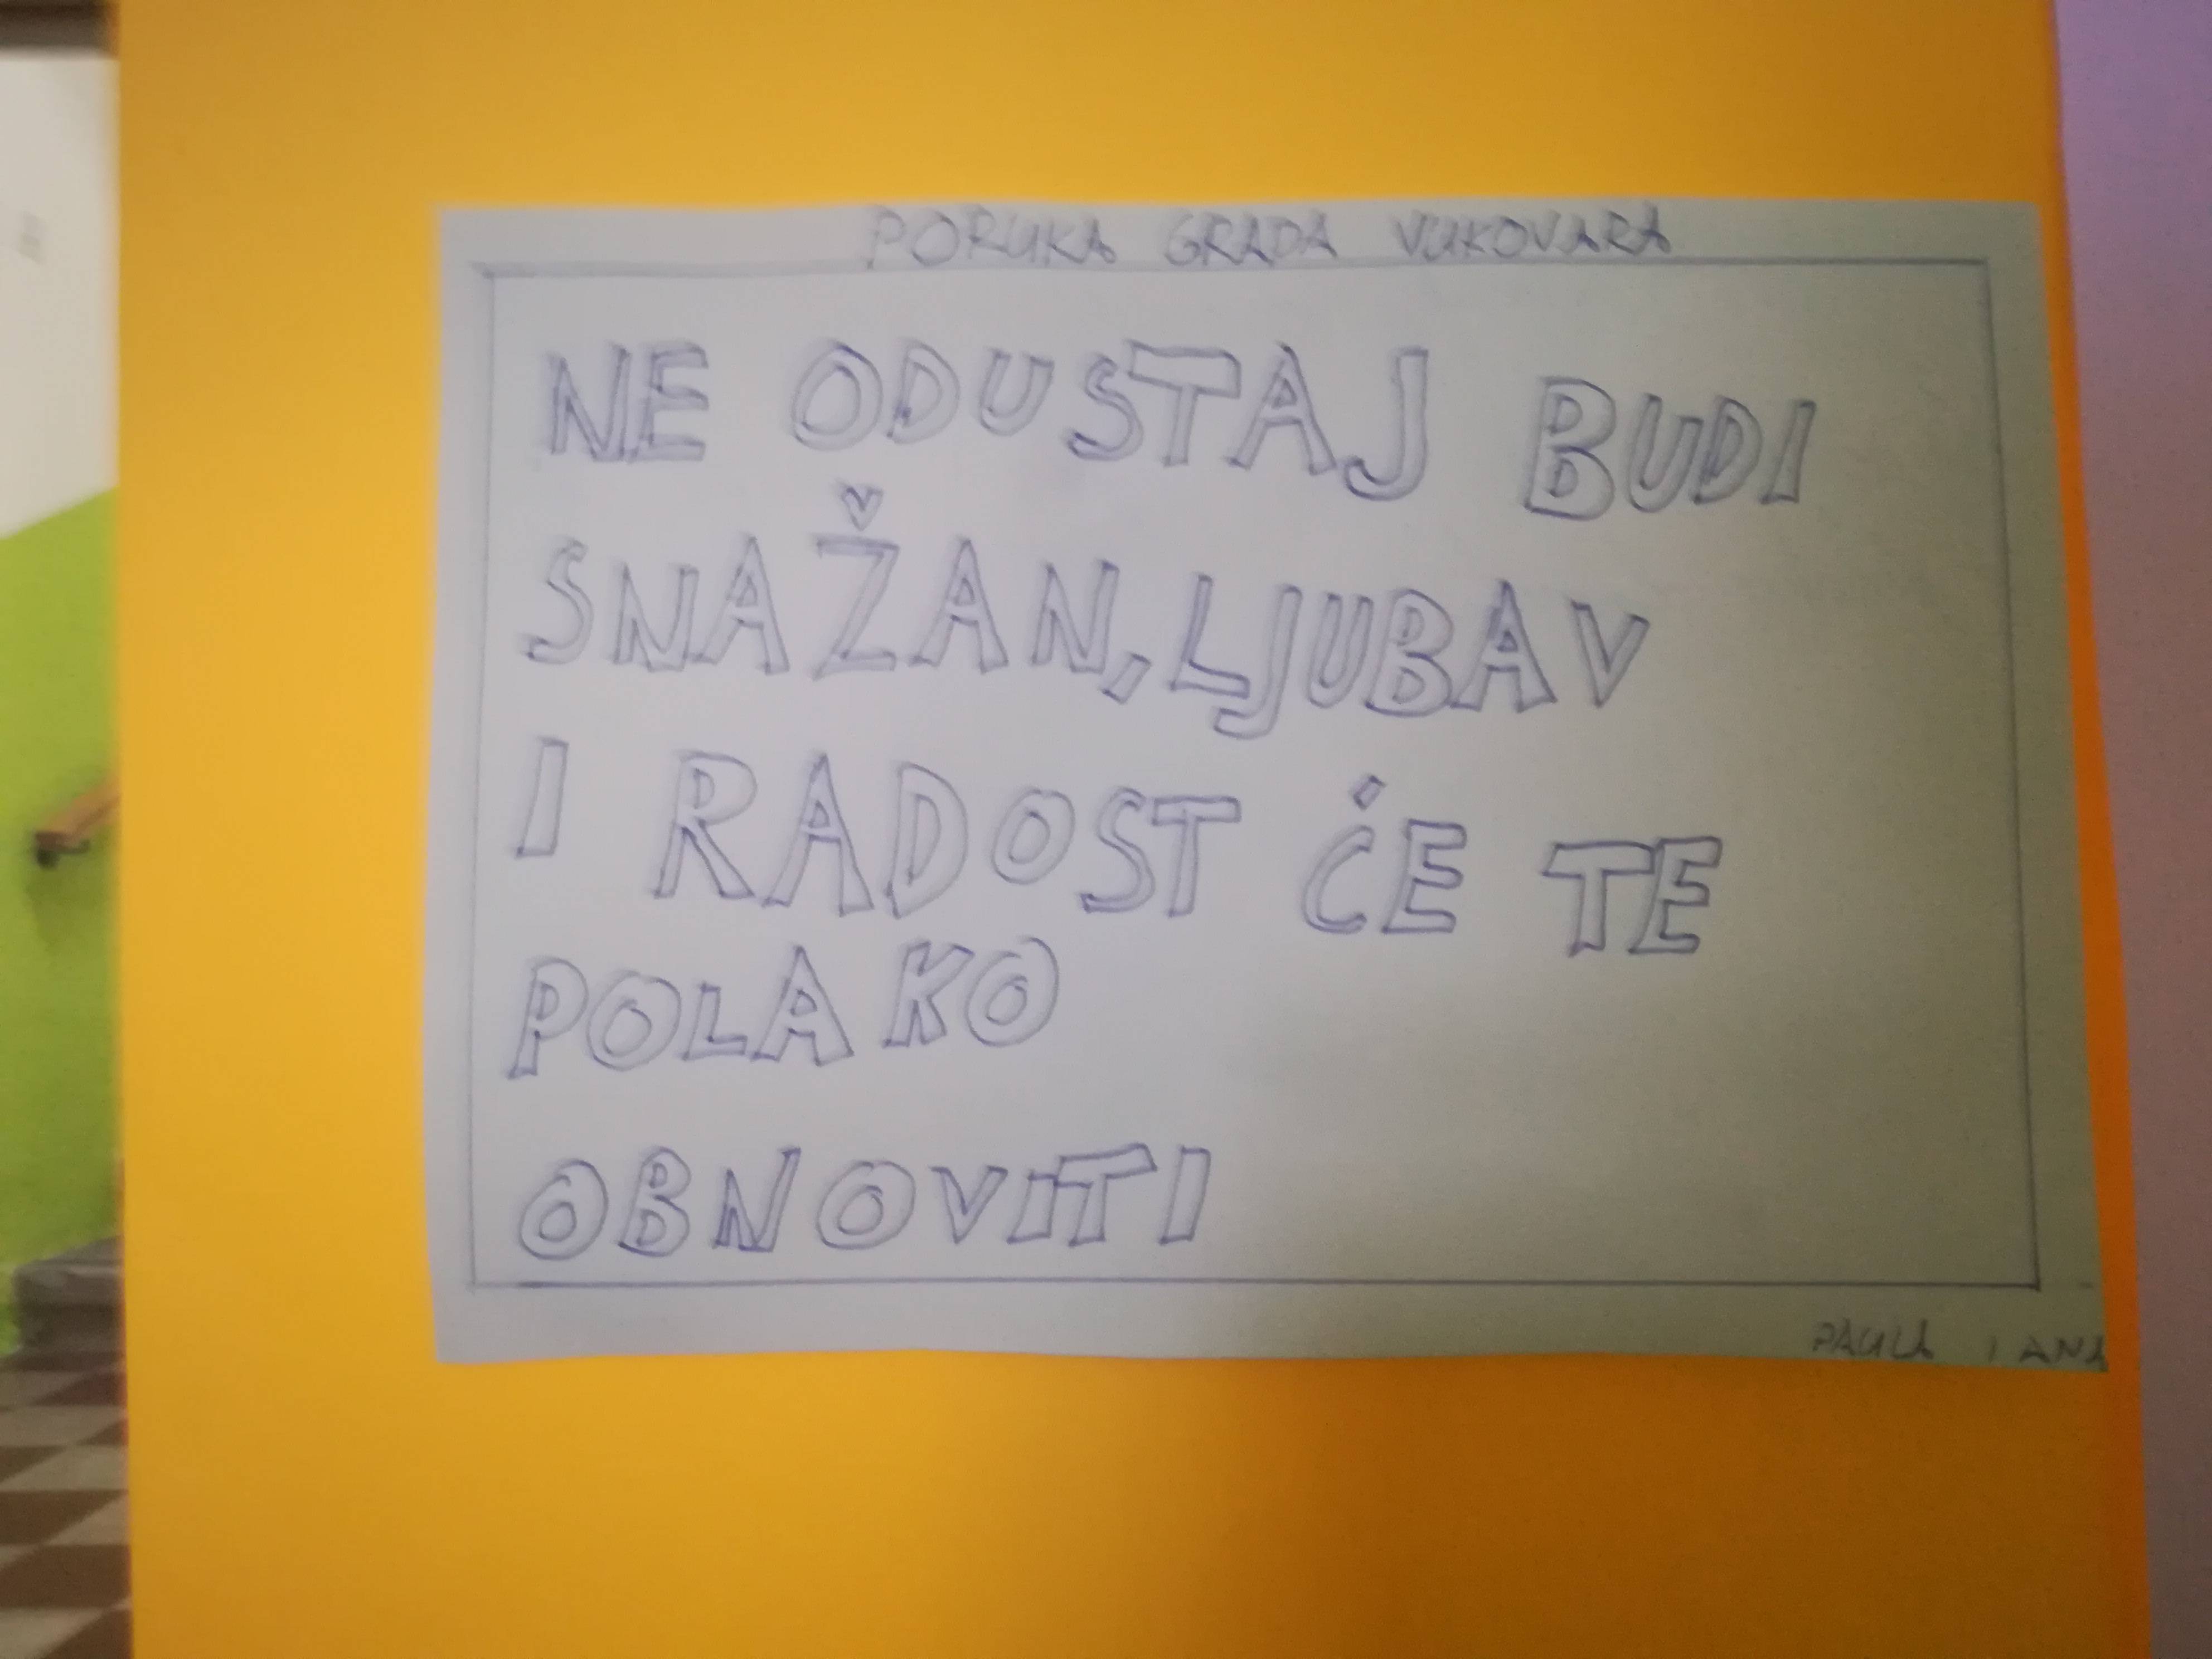 PORUKA GRADA VUKOVARA
NE ODUSTAJ BUDI
SNAŽAN, LJUBAV
I RADOST ĆE TE
POLAKO
OBNOVITI
PAULA I ANA